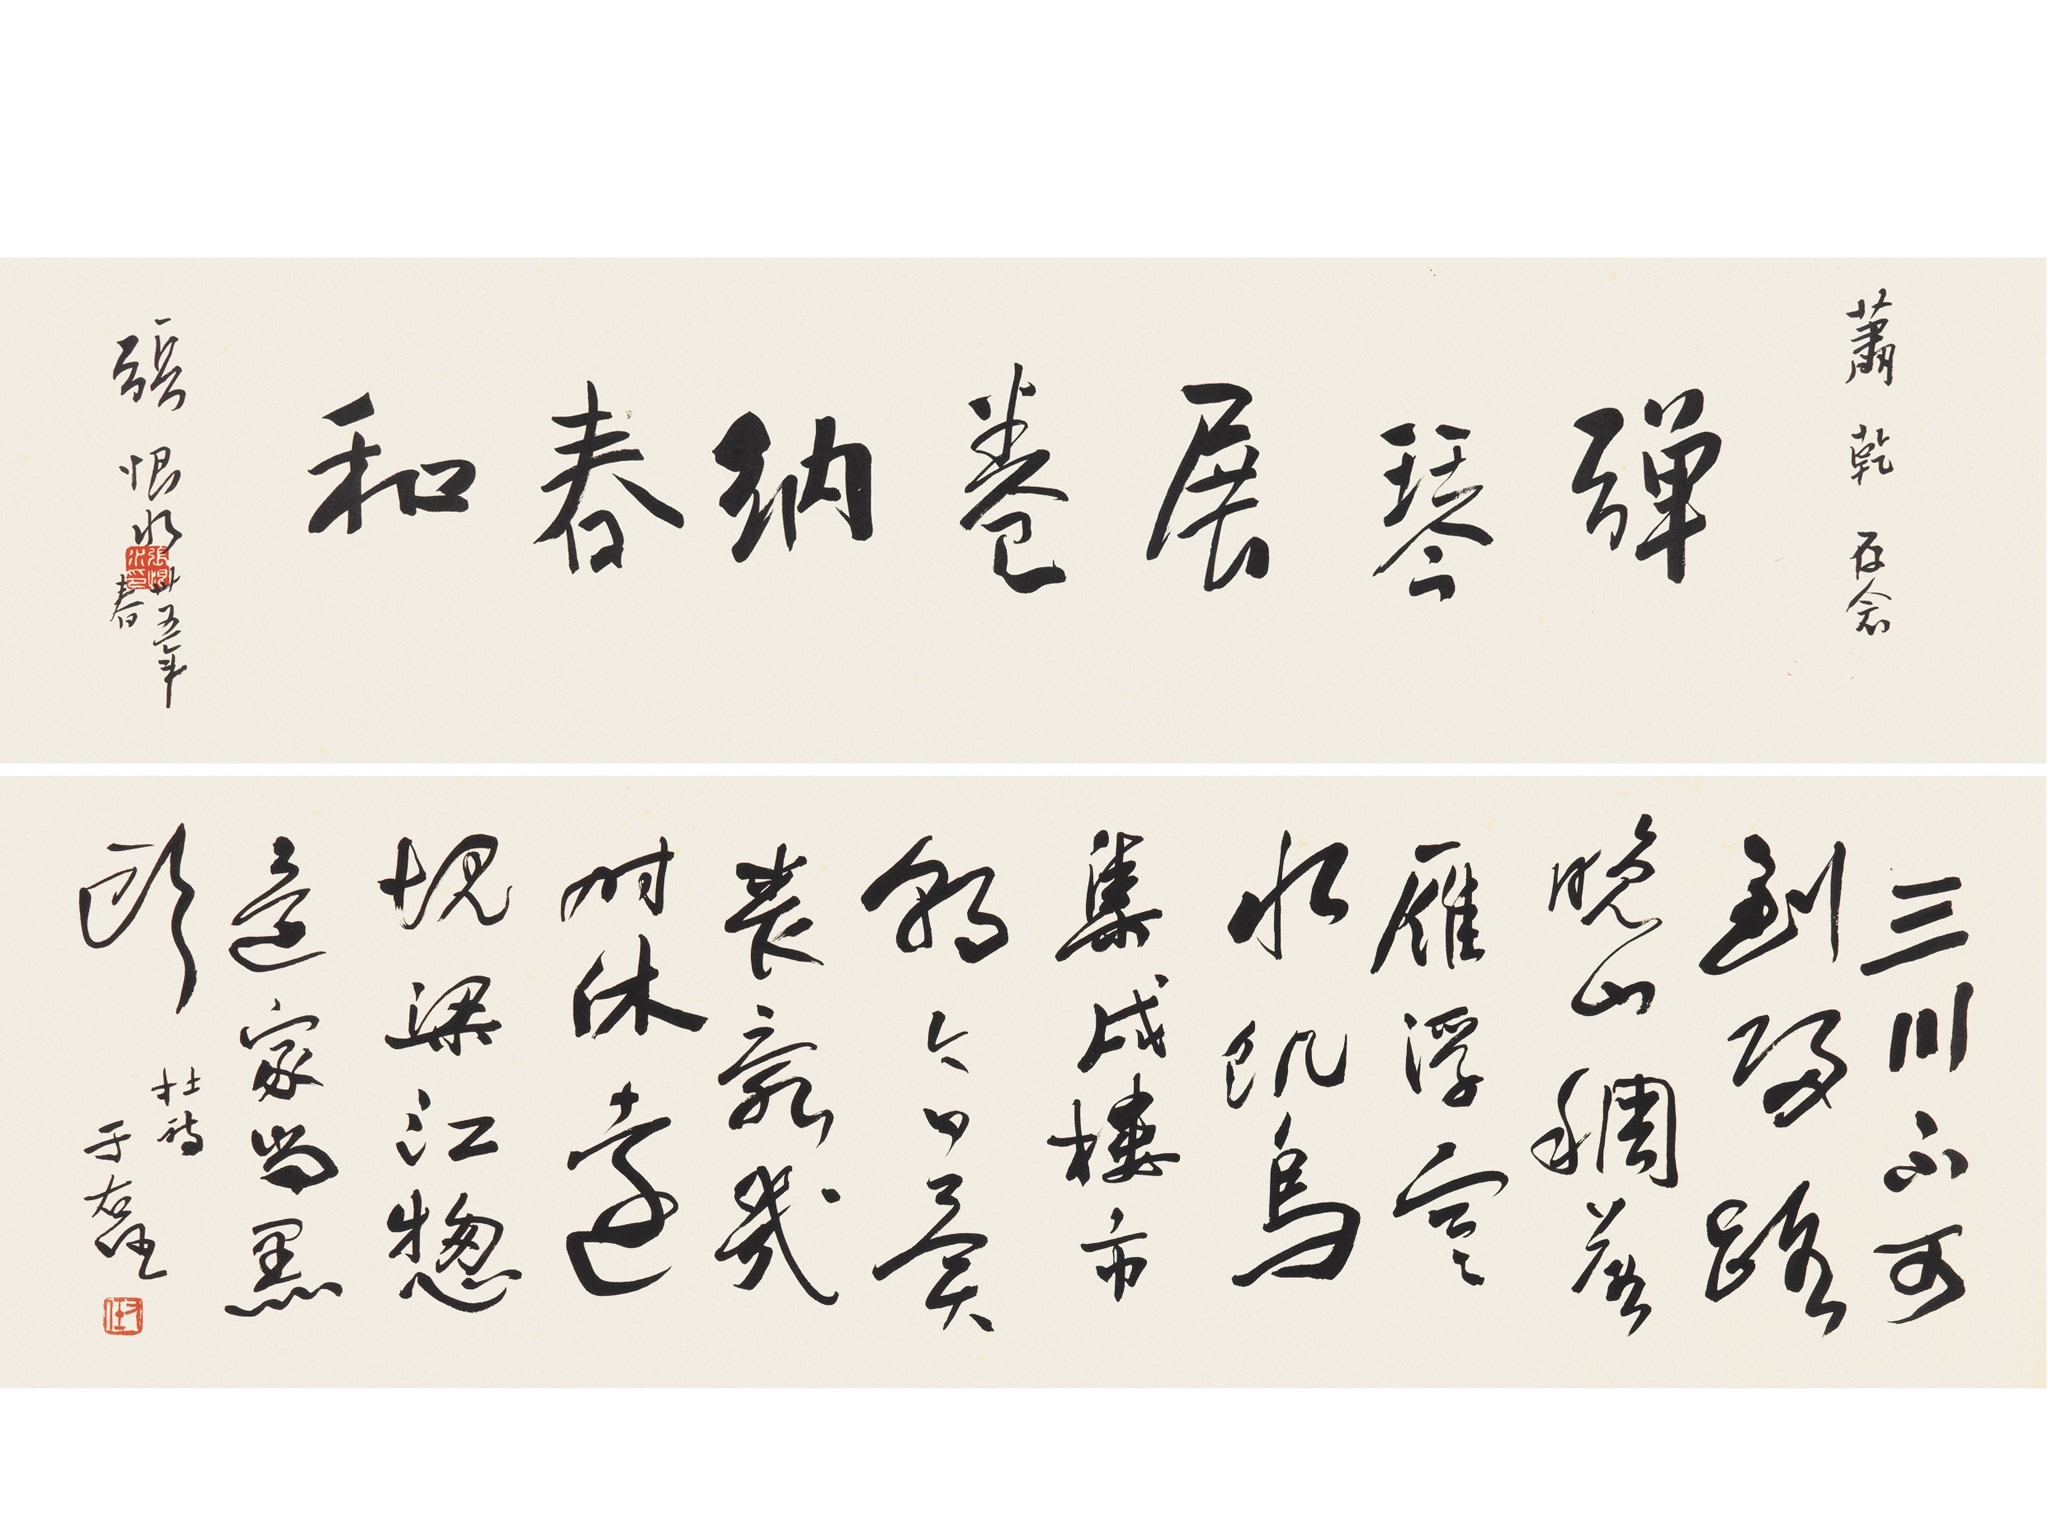 蕭乾存念
彈琴展卷納春和
張恨水
卅五年
春
張恨水印
三川不可
到歸路
晚山稠落
雁浮寒
水飢烏
集戍樓市
朝今日異
喪亂幾
時休遠
愧梁江總
還家尚黑
頭
杜詩
于右任
右任